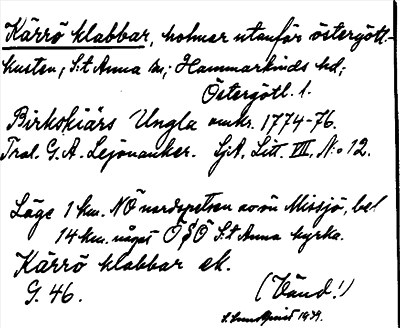 Kärrö klabbar, holmar utanför östergötl.-
kusten, S:t Anna sn; Hammarkinds hd;
Östergötl. l.
Birkskärs Ungla omkr. 1774-76.
Tral. G. A. Lejonanker. SjA. Litt. VII, N:o 12.
Läge 1 km. NÖ nordspetsen av ön Missjö, bel
14 km. något Ö S:t Anna kyrka.
Kärrö klabbar ek.
G. 46.
(Vänd!)
1939.